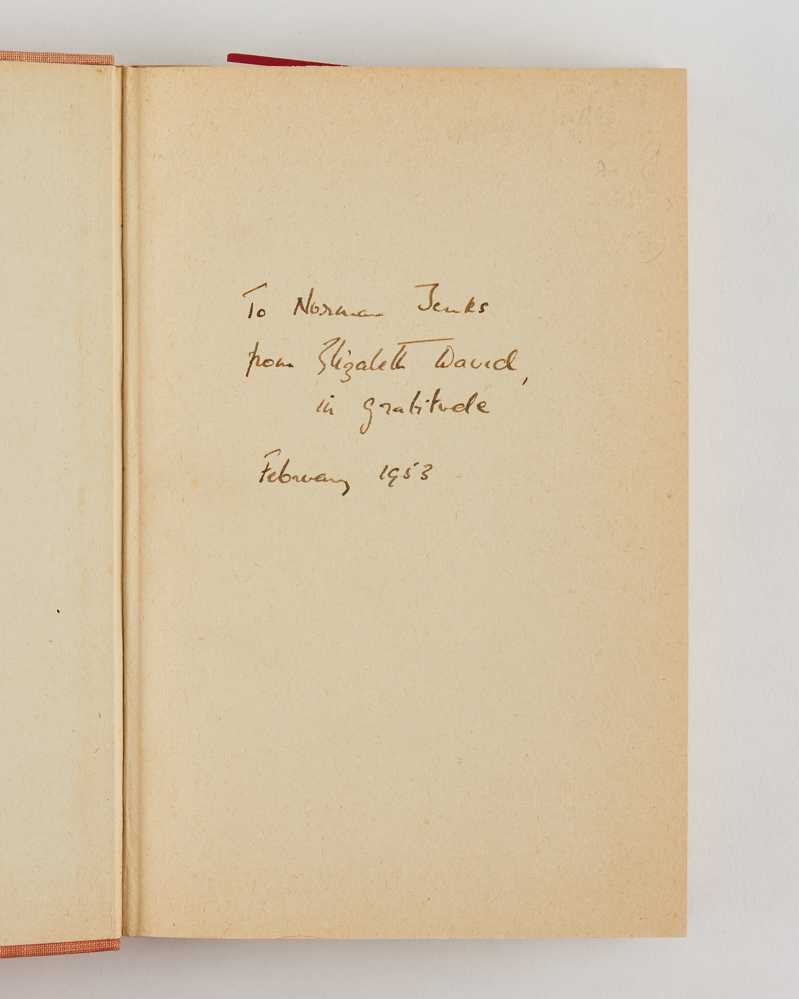 To Norman Jenks
from Elizabeth David,
in gratitude
February 1953